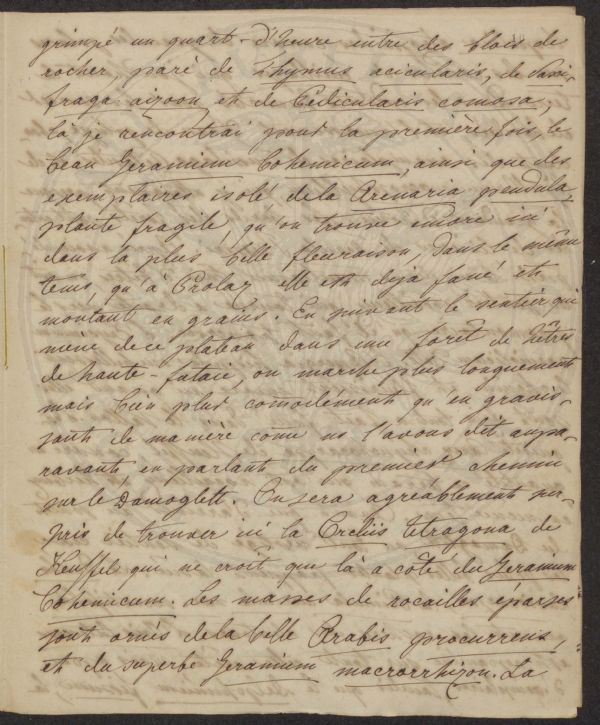 grimpé un quart-d'heure entre des blocs de
rocher, paré de Thymus acicularis, de Saxi-
fraga aizoon, et de Pedicularis comosa;
là je rencontrai pour la première fois, le
beau Geranium bohemicum, ainsi que des
exemplaires isolé, de la Arenaria pendula,
plante fragile, qu'on trouve encore ici
dans la plus belle fleuraison, dans le même
tems, qu'à Prolaz elle est deja fané et
montant en grains. En suivant le sentier qui
mène de ce plateau dans une forêt de hêtres
de haute-futaie, on marche plus longuement
mais bien plus comodément qu'en gravis-
sant de manière come ns l'avons dit aupa-
ravant, en parlant du premier chemin
sur le Domoglett. On sera agréablement sur-
pris de trouver ici la Orchis tetragona de
Heuffel qui ne croit que là a côté du Geranium
bohemicum. Les masses de rocailles éparses
sont ornés de la belle Arabis procurrens,
et du superbe Geranium macrorrhizon. La